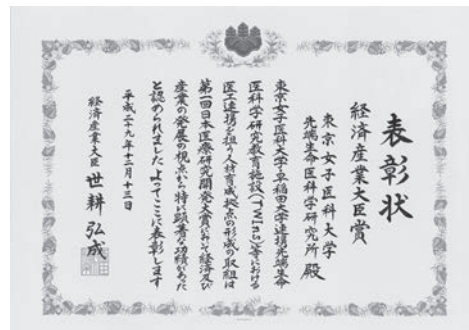 表彰状
経済産業大臣賞
東京女子医科大学
先端生命医科学研究所 殿
東京女子医科大学・早稲田大学連携先端生命
医科学研究教育施設(TWIns)等における
医工連携を担う人材育成拠点の形成の取組は
第一回日本医療研究開発大賞において経済及び
産業の発展の視点から特に顕著な功績があった
と認められました よってここに表彰します
平成二十九年十二月十三日
経済産業大臣 世耕弘成